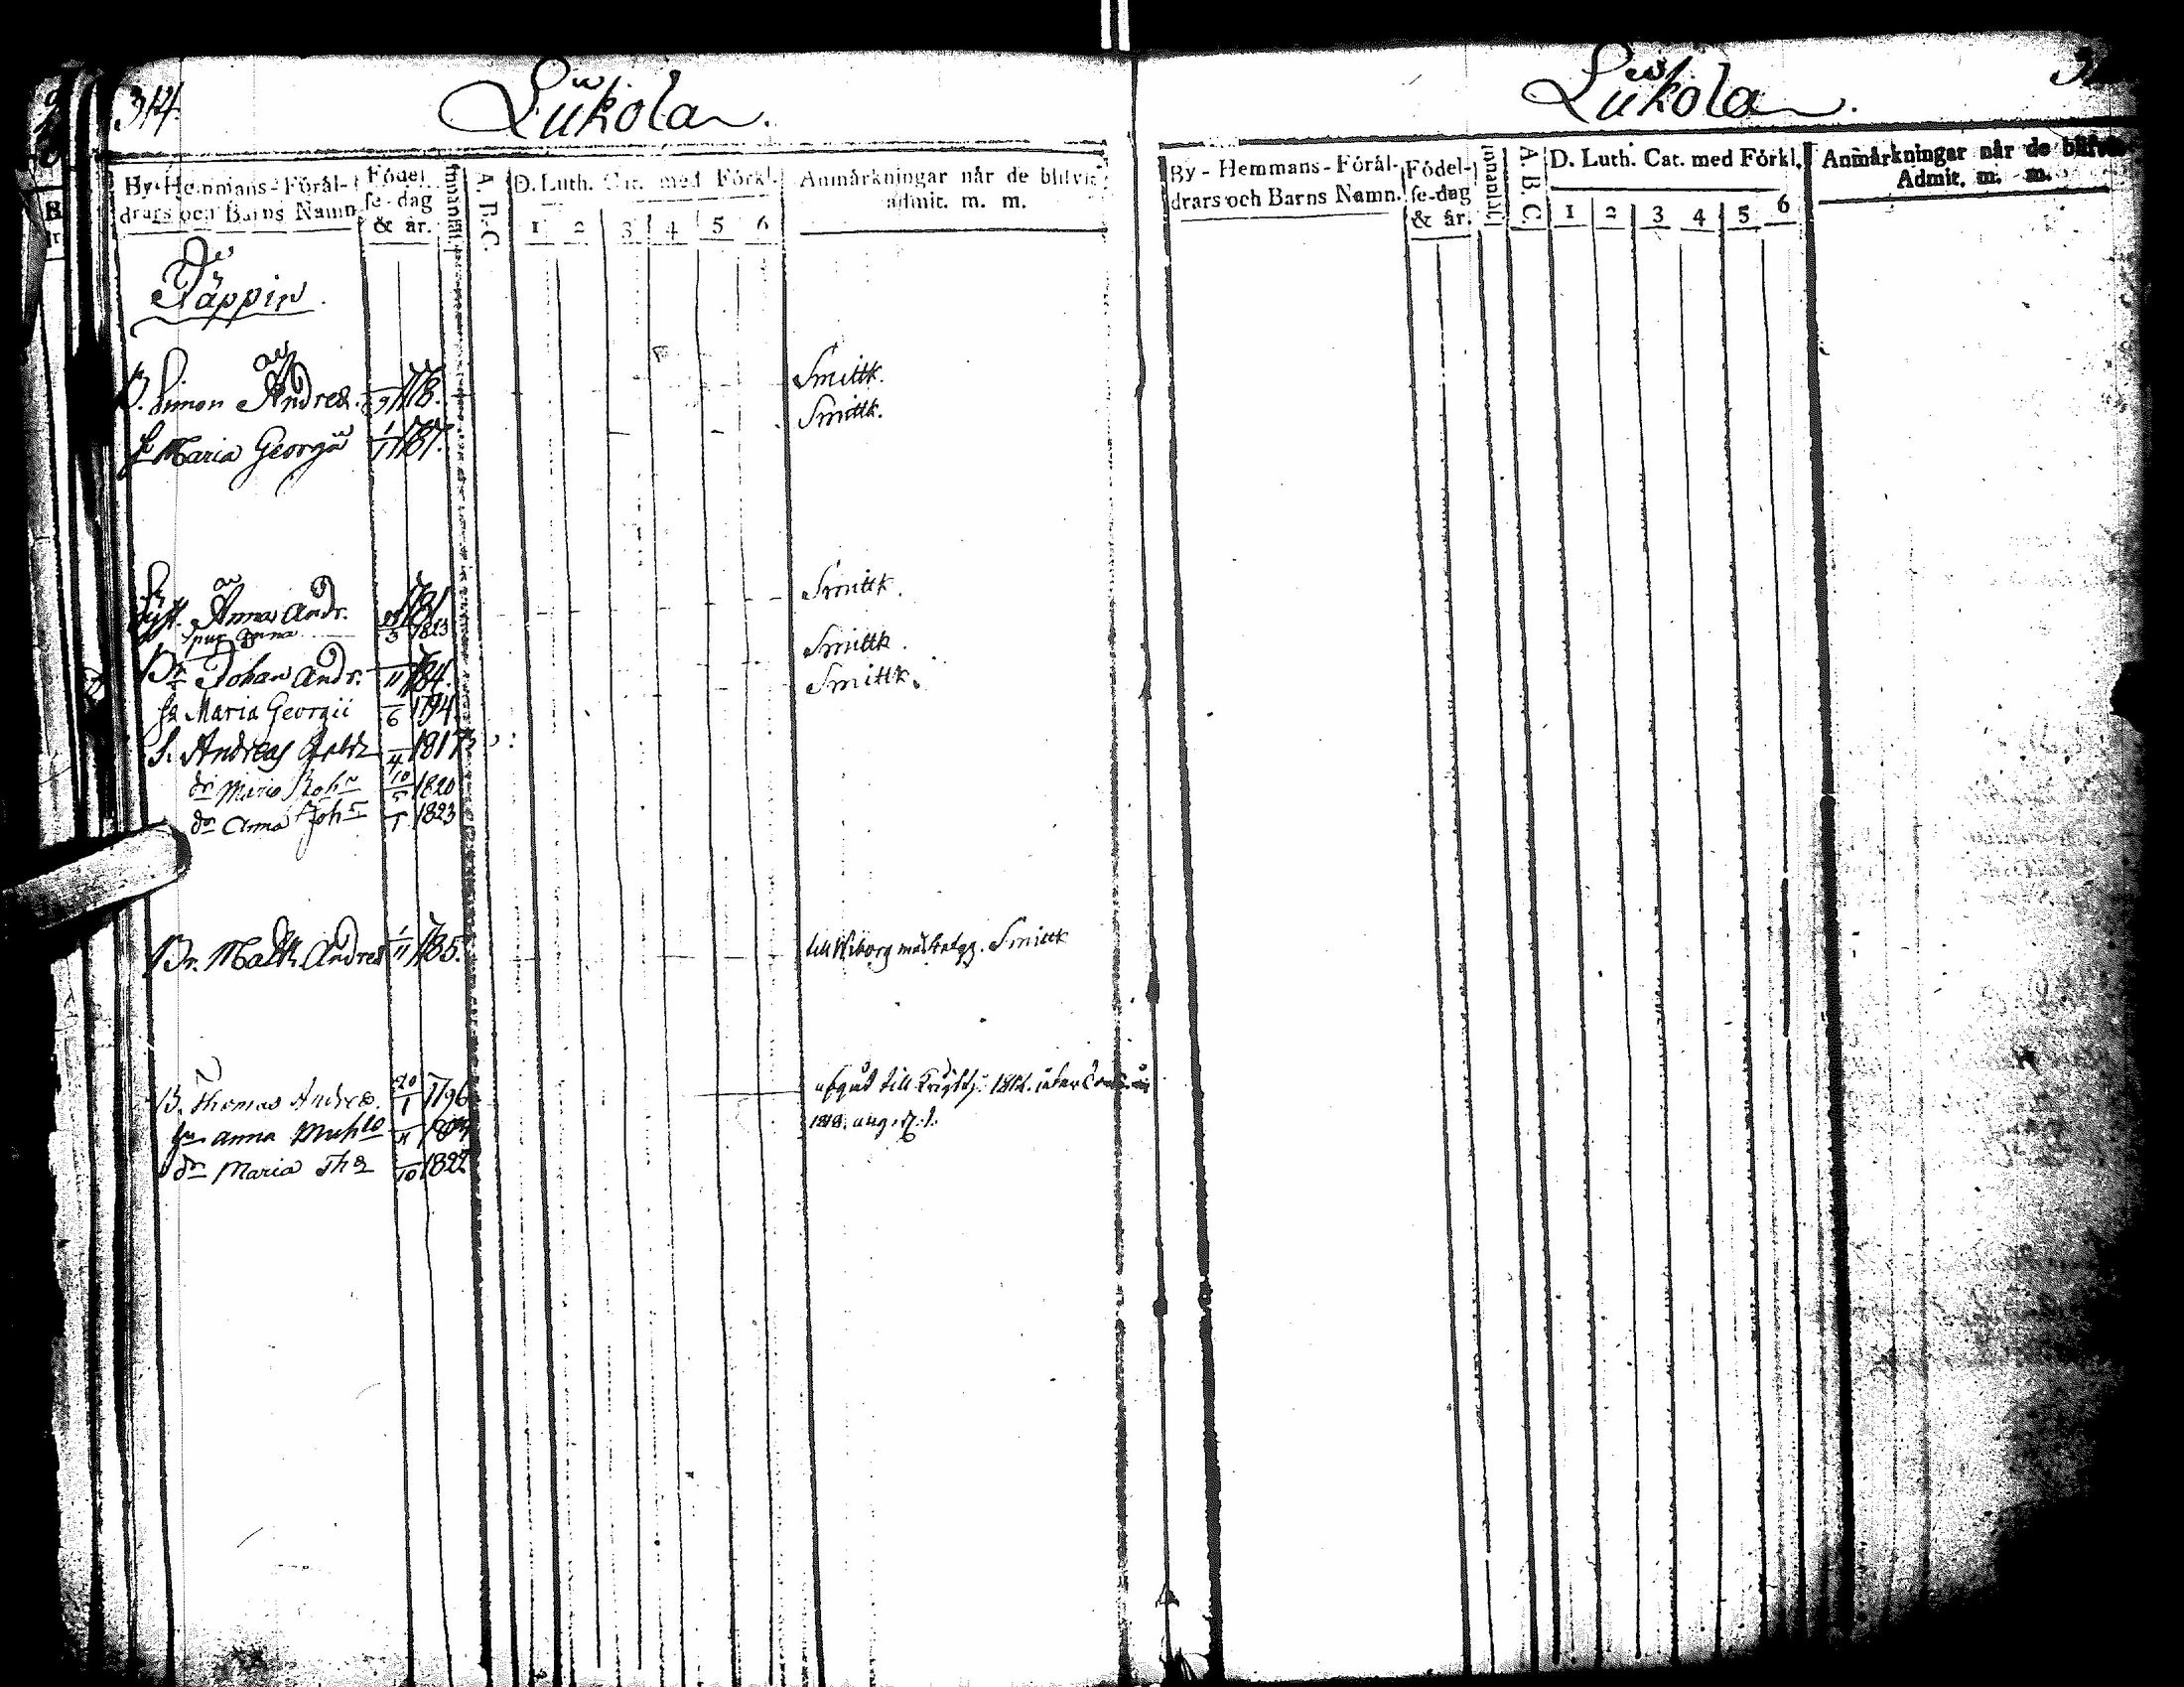 314.
Lükola.
By-Hemmans-Föräl-
drars och Barns Namn.
Födel
se-dag
& år.
Innanläs.
A. B. C.
D. Luth. Cat. med Förkl.
1 2 3 4 5 6
Anmärkningar når de blifvit
admit. m. m.
Päppin.
B. Simon Andreæ. 1778. Smittk.
h. Maria Georgii 1/11 1787. Smittk.
Syst. Anna Andr. 1781 Smittk.
spur. Anna 5 1823
Br Johan Andr. 11 1784. Smittk.
h Maria Georgii 6 1794 Smittk.
S. Andreas 4 1817
dr Maria Joh 10/5 1820
dr Anna Joh 1 1823
Br. Matth Andreæ 1/11 1785. till Wiborg med Smittk
B. Thomas Andreæ. 20/1 1796 utgått till 1812.
hu Anna 11 1818. aug.
dr Maria Th 10 1822
Lükola.
By-Hemmans-Förål-
drars och Barns Namn.
Födel-
se-dag
& år.
Innanläs.
A. B. C.
D. Luth. Cat. med Förkl.
1 2 3 4 5 6
Anmärkningar når de blifvit
Admit. m. m.